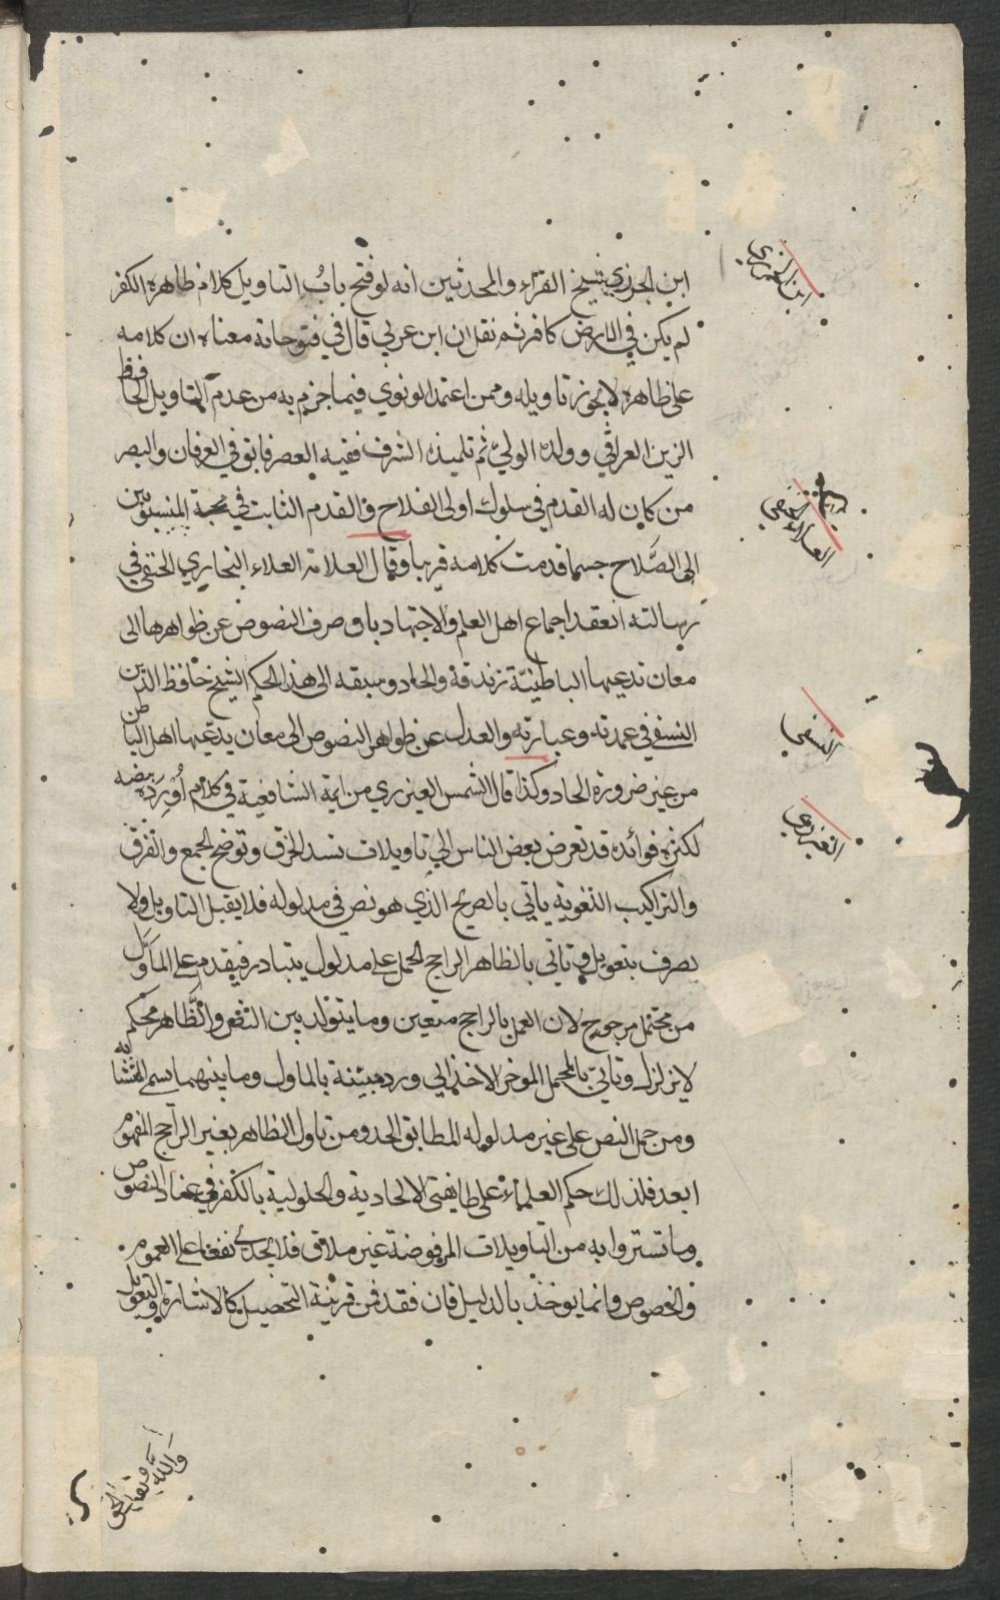 ابن الجزري شيخ القراء والمحدثين انه لو فتح باب التاويل كلام ظاهره الكفر
لم يكن في الارض كافر ثم نقل ان ابن عربي قال في فتوحاته معناه ان كلامه
على ظاهره لا يجوز تاويله وممن اعتمد النووي فيما جزم به من عدم التاويل الحافظ
الزين العراقي وولده الولي ثم تلميذه الشرف فقيه العصر فايق في العرفان والبصر
من كان له القدم في سلوك اولى الفلاح والقدم الثابت في محبة المنسبوبين
الى الصَّلاح حسما قدمت كلامه قريبا وقال العلامة العلاء البخاري الحنفي في
رسالته انعقد اجماع اهل العلم والاجتهاد بان صرف النصوص عن ظواهرها الى
معان تدعيها الباطنيّة زندقة والحاد وسبقه الى هذا الحكم الشيخ حافظ الدين
النسفي في عمدته وعبارته والعدل عن ظواهر النصوص الى معان يدّعيها اهل الباطن
من غير ضرورة الحاد وكذا قال الشمس العيزري من ايمة الشافعية في كلام اُورِدُه بنصه
لكثرة فوائده قد تعرض بعض الناس الى تاويلات تسد الخرق وتوضح الجمع والفرق
والتراكيب اللغوية ياتي بالصريح الذي هو نص في مدلوله فلا يقبل التاويل ولا
يصرف بتعويل وياتي بالظاهر الراجح الحمل على مدلول يتبادر فيقدم على الماَوَّل
من محتمل مرجوح لان العمل بالراجح متعين وما يتولد بين النص والظَّاهر محكم
لا يزلزل وتاتي بالمجمل الموخر الاخذ الى ورد مبينه بالماول وما بينهما اسم المتشابه
ومن حمل النص على غير مدلوله المطابق الحد ومن تاول الظاهر بغير الراجح المفهوم
ابعد فلذلك حكم العلماء على طايفتى الالحادية والحلولية بالكفر في عناد النصوص
وما تستروا به من التاويلات المرفوضة غير ملاق فلا يجدى نفعا على العموم
والخصوص وانما يوخذ بالدليل فان فقد فمن قرينة التحصيل كالاشارة والتعويل
ابن الجزري
العلا البخاري
النسفي
العيزري
والله